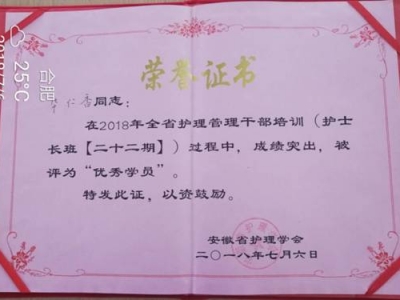 荣誉证书
仁香同志:
在2018年全省护理管理干部培训(护士
长班【二十二期】)过程中,成绩突出,被
评为“优秀学员”。
特发此证,以资鼓励。
安徽省护理学会
二〇一八年七月六日
合肥
25°C
2018/7/6